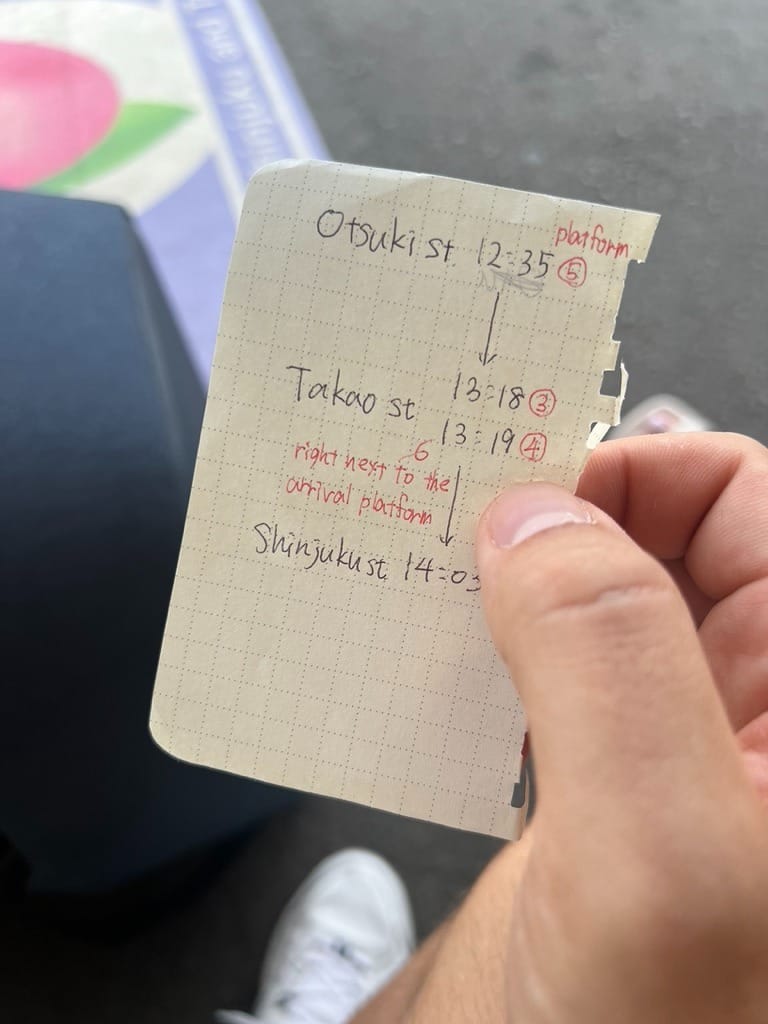 platform
Otsuki st. 12:35 ⑤
Takao st 13:18 ③
13:19 ④
6
right next to the
arrival platform
Shinjuku st. 14:03
and